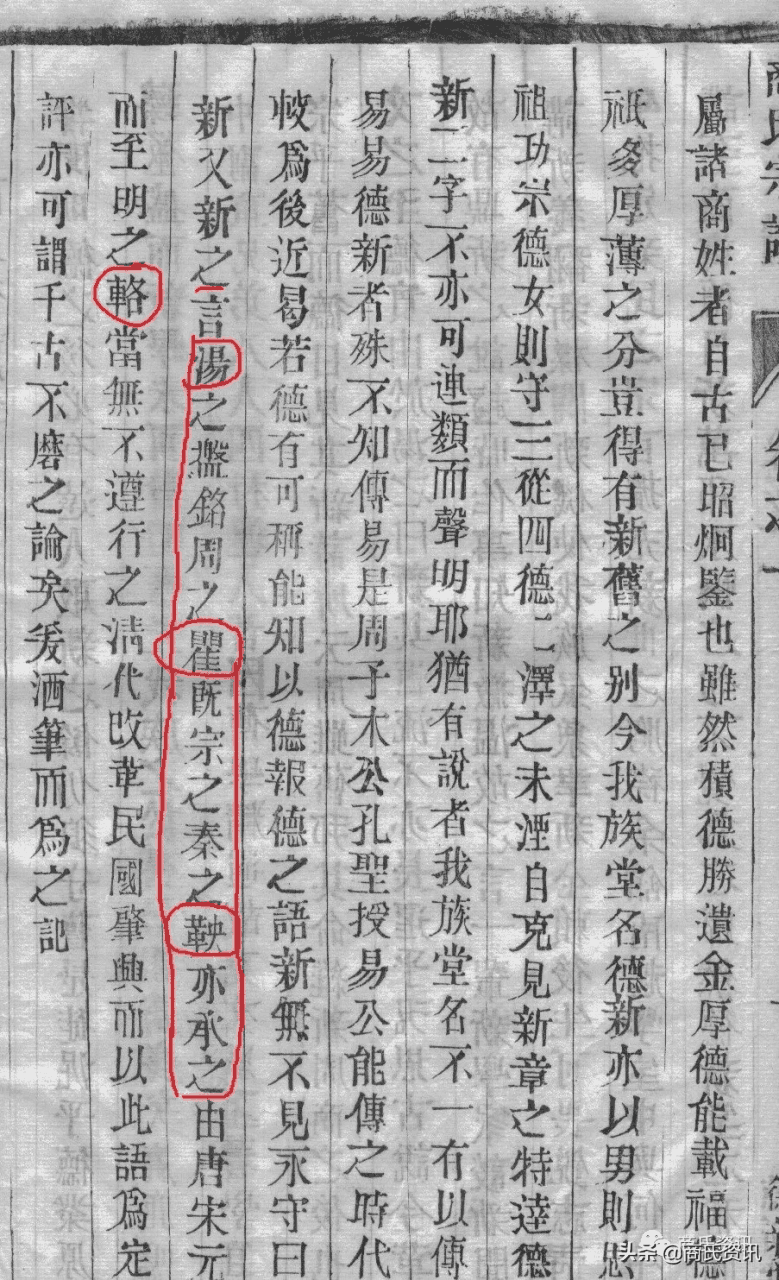 商氏宗譜
卷之一
屬諸商姓者自古已昭烱鑒也雖然積德勝遺金厚德能載福德
祇多厚薄之分豈得有新舊之别今我族堂名德新亦以男則思
祖功宗德女則守三從四德二澤之未湮自克見新章之特達德
新二字不亦可連類而聲明耶猶有說者我族堂名不一有以傳
易易德新者殊不知傳易是周子木公孔聖授易公能傳之時代
較爲後近曷若德有可稱能知以德報德之語新無不見永守曰
新又新之言湯之盤銘周之瞿既宗之秦之鞅亦承之由唐宋元
而至明之輅當無不遵行之清代改革民國肇興而以此語爲定
評亦可謂千古不磨之論矣爰洒筆而爲之記
商氏资讯
头条@商氏资讯